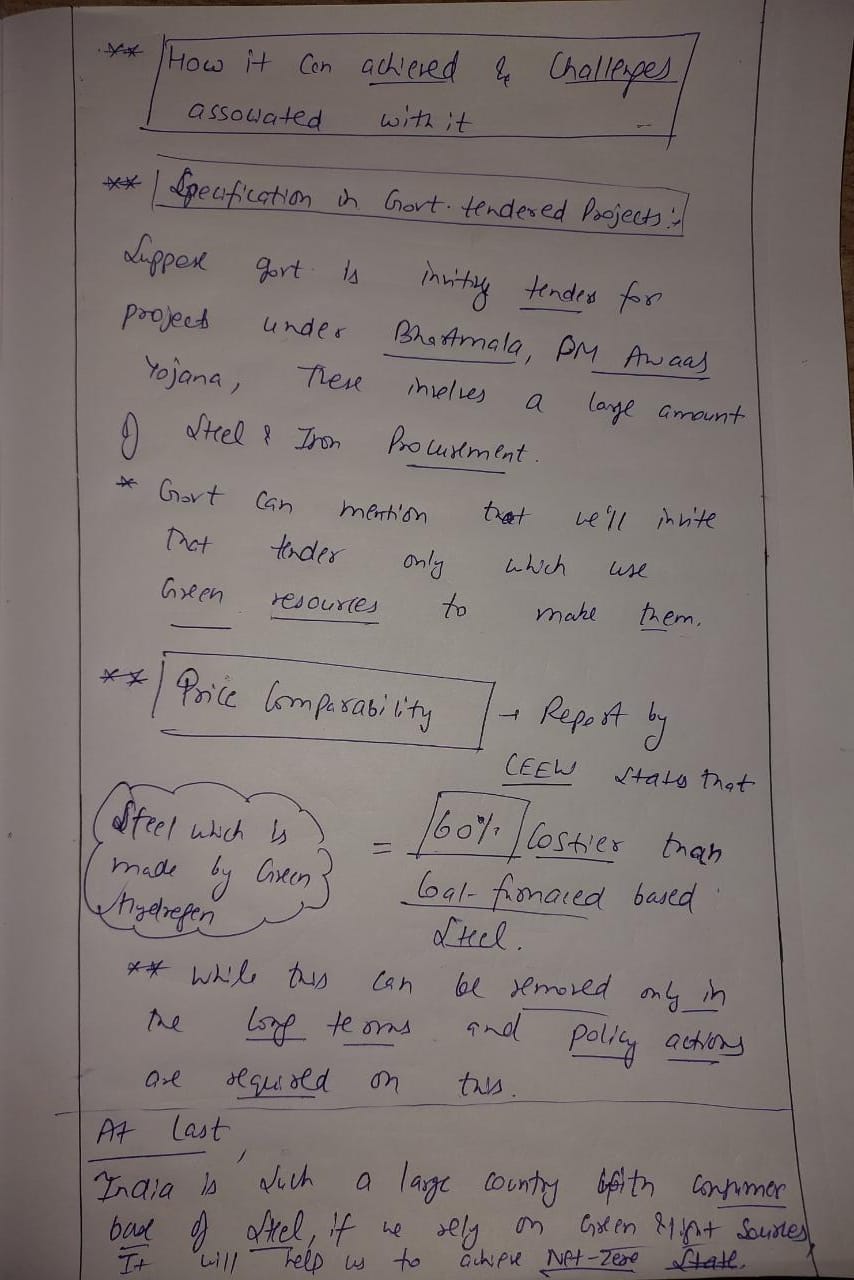 ** How it Can achieved & Challenges
assowated with it
** Specification in Govt. tendered Projects:-
Suppose govt is inviting tender for
projects under Bhartmala, PM Awaas
Yojana, These involves a large amount
of Steel & Iron Procurement.
* Govt can mention that we'll invite
that tender only which use
Green resources to make them.
** Price Comparability → Report by
CEEW states that
Steel which is
made by Green
Hydrogen
= 60% Costier than
Coal-furnaced based
Steel.
** While this can be removed only in
the long terms and policy actions
are required on this.
At last,
India is such a large country with consumer
base of Steel, if we rely on Green & light Sources,
It will help us to achieve Net-Zero State.